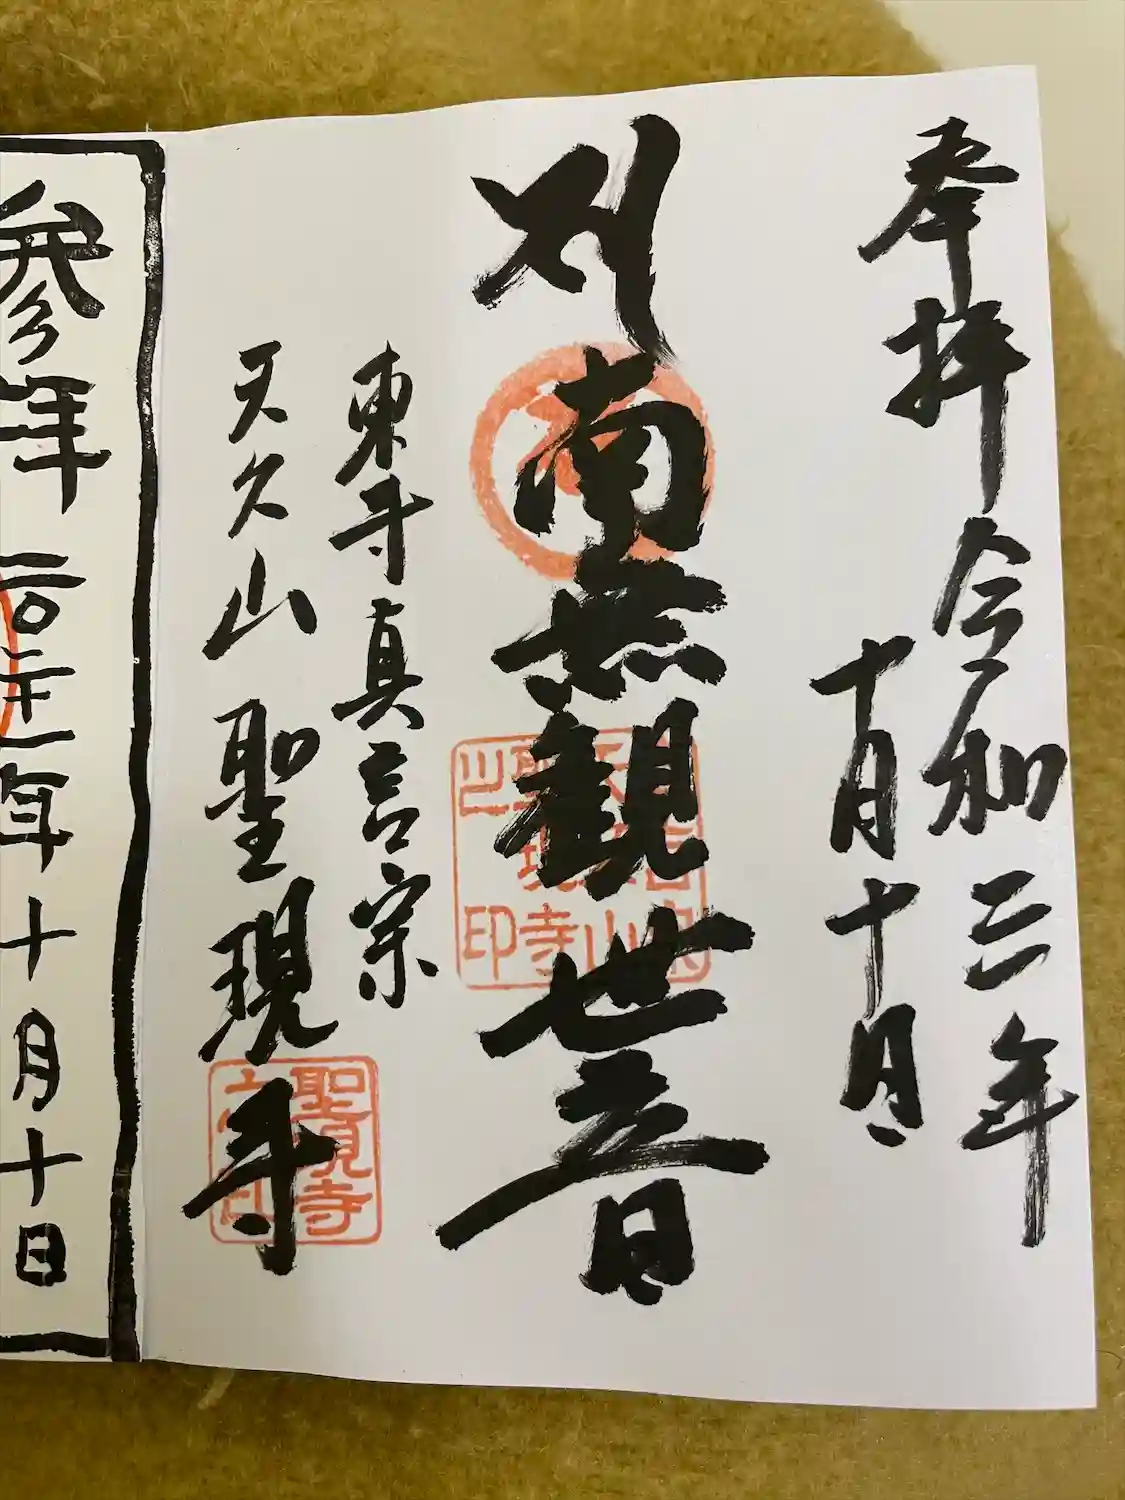 奉拝 令和三年
十月十日
南無観世音
東寺真言宗
天久山 聖現寺
聖現寺
参年 二〇二一年十月十日